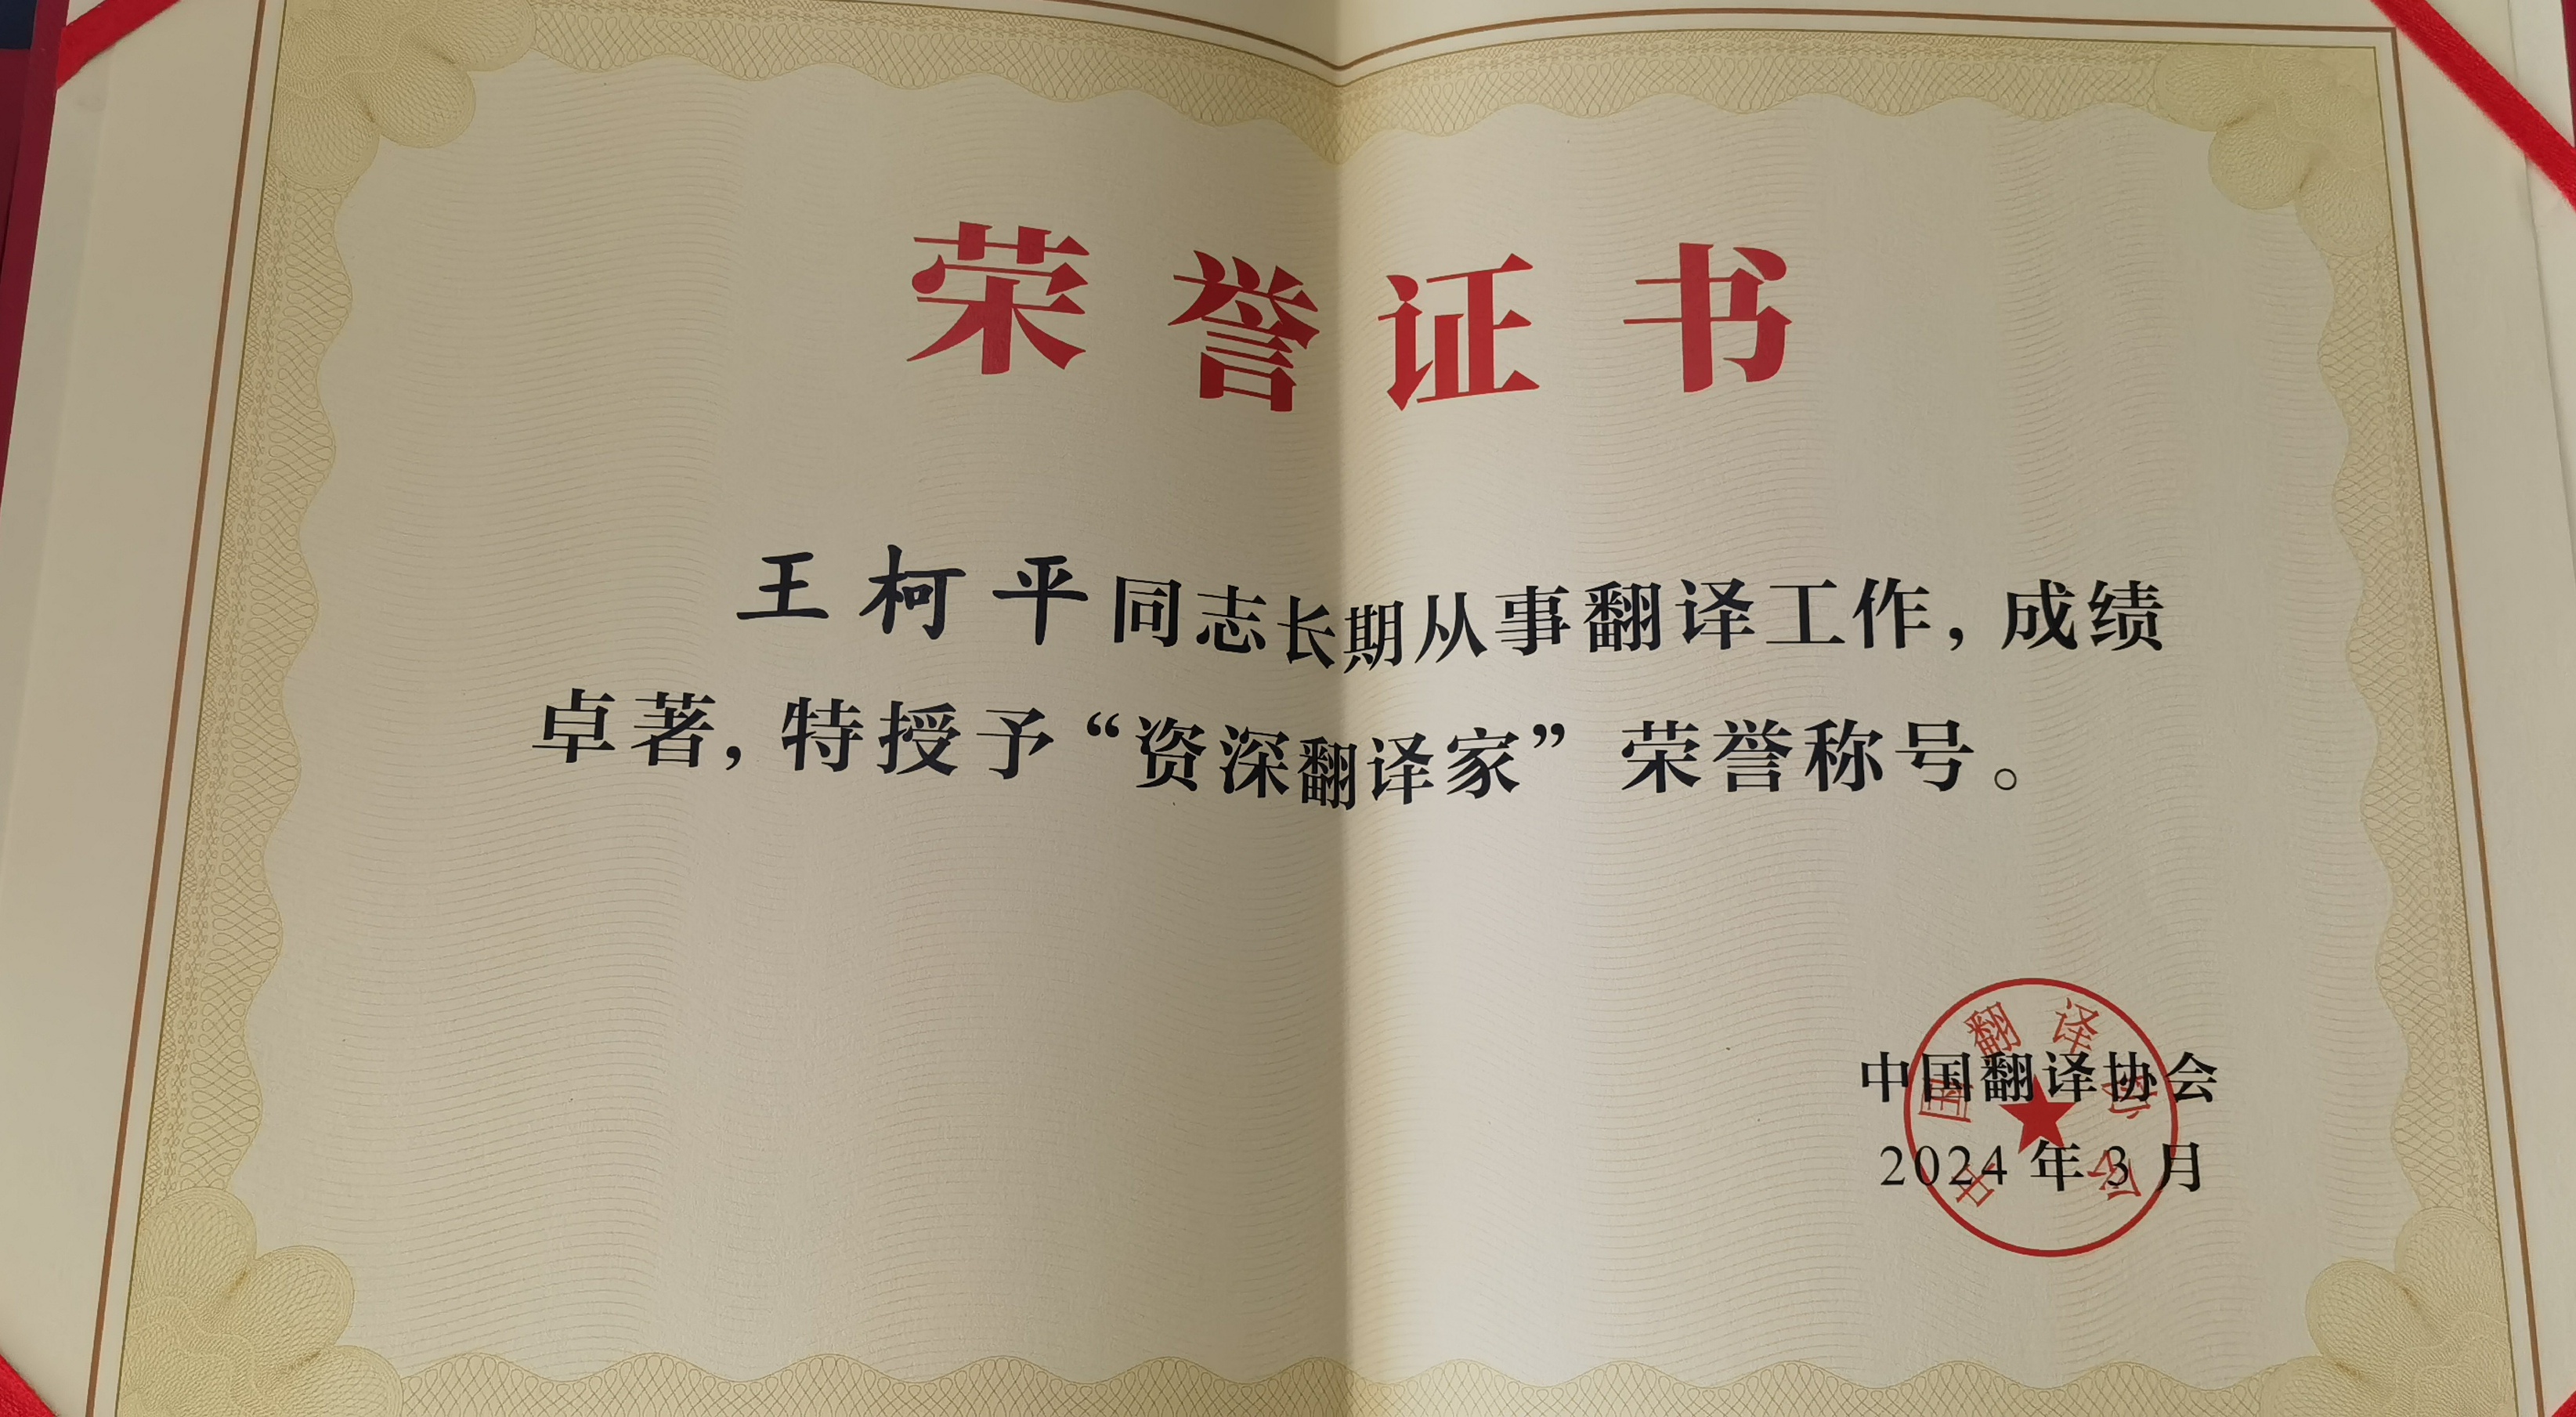 荣誉证书
王柯平同志长期从事翻译工作，成绩
卓著，特授予“资深翻译家”荣誉称号。
中国翻译协会
2024年3月
中国翻译协会